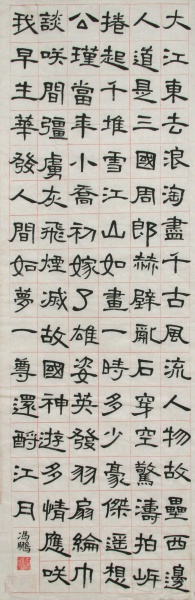 大江東去浪淘盡千古風流人物故壘西邊
人道是三國周郎赫壁亂石穿空驚濤拍岸
捲起千堆雪江山如畫一時多少豪傑遙想
公瑾當年小喬初嫁了雄姿英發羽扇綸巾
談咲間彊虜灰飛煙滅故國神遊多情應咲
我早生華發人間如夢一尊還酹江月
馮鵬